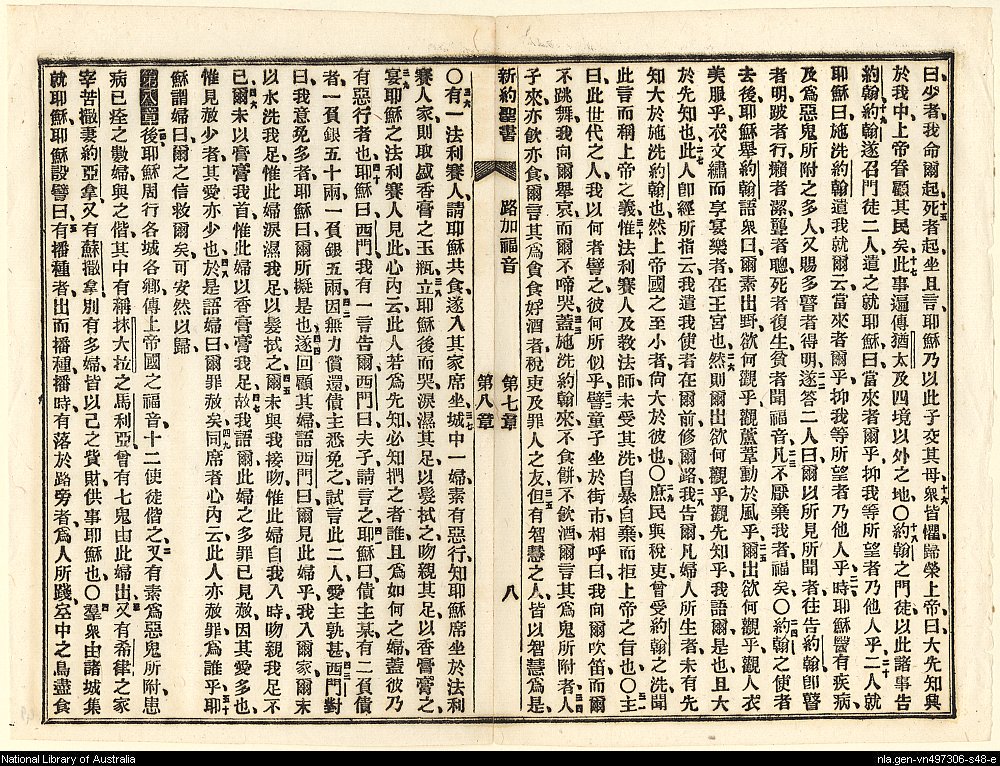 曰少者我命爾起死者起坐且言耶穌乃以此子交其母衆皆懼歸榮上帝曰大先知興
於我中上帝眷顧其民矣此事遍傳猶太及四境以外之地〇約翰之門徒以此諸事告
約翰約翰遂召門徒二人遣之就耶穌曰當來者爾乎抑我等所望者乃他人乎二人就
耶穌曰施洗約翰遣我就爾云當來者爾乎抑我等所望者乃他人乎時耶穌醫有疾病
及爲惡鬼所附之多人又賜多瞽者得明遂答二人曰爾以所見所聞者往告約翰卽瞽
者明跛者行癩者潔聾者聰死者復生貧者聞福音凡不厭棄我者福矣〇約翰之使者
去後耶穌舉約翰語衆曰爾素出野欲何觀乎觀蘆葦動於風乎爾出欲何觀乎觀人衣
美服乎衣文繡而享宴樂者在王宮也然則爾出欲何觀乎觀先知乎我語爾是也且大
於先知也此人卽經所指云我遣我使者在爾前修爾路我告爾凡婦人所生者未有先
知大於施洗約翰也然上帝國之至小者尙大於彼也〇庶民與稅吏曾受約翰之洗聞
此言而稱上帝之義惟法利賽人及教法師未受其洗自暴自棄而拒上帝之旨也〇主
曰此世代之人我以何者譬之彼何所似乎譬童子坐於街市相呼曰我向爾吹笛而爾
不跳舞我向爾舉哀而爾不啼哭蓋施洗約翰來不食餅不飲酒爾言其爲鬼所附者人
子來亦飲亦食爾言其爲貪食好酒者稅吏及罪人之友但有智慧之人皆以智慧爲是
新約聖書 路加福音 第七章 第八章 八
〇有一法利賽人請耶穌共食遂入其家席坐城中一婦素有惡行知耶穌席坐於法利
賽人家則取盛香膏之玉瓶立耶穌後而哭淚濕其足以髮拭之吻親其足以香膏膏之
宴耶穌之法利賽人見此心內云此人若爲先知必知捫之者誰且爲如何之婦蓋彼乃
有惡行者也耶穌曰西門我有一言告爾西門曰夫子請言之耶穌曰債主某有二負債
者一負銀五十兩一負銀五兩因無力償還債主悉免之試言此二人愛主孰甚西門對
曰我意免多者耶穌曰爾所擬是也遂回顧其婦語西門曰爾見此婦乎我入爾家爾未
以水洗我足惟此婦淚濕我足以髮拭之爾未與我接吻惟此婦自我入時吻親我足不
已爾未以膏膏我首惟此婦以香膏膏我足故我語爾此婦之多罪已見赦因其愛多也
惟見赦少者其愛亦少也於是語婦曰爾罪赦矣同席者心內云此人亦赦罪爲誰乎耶
穌謂婦曰爾之信救爾矣可安然以歸
第八章後耶穌周行各城各鄉傳上帝國之福音十二使徒偕之又有素爲惡鬼所附患
病已痊之數婦與之偕其中有稱抹大拉之馬利亞曾有七鬼由此婦出又有希律之家
宰苦撒妻約亞拿又有蘇撒拿別有多婦皆以己之貲財供事耶穌也〇羣衆由諸城集
就耶穌耶穌設譬曰有播種者出而播種播時有落於路旁者爲人所踐空中之鳥盡食
National Library of Australia
nla.gen-vn497306-s48-e